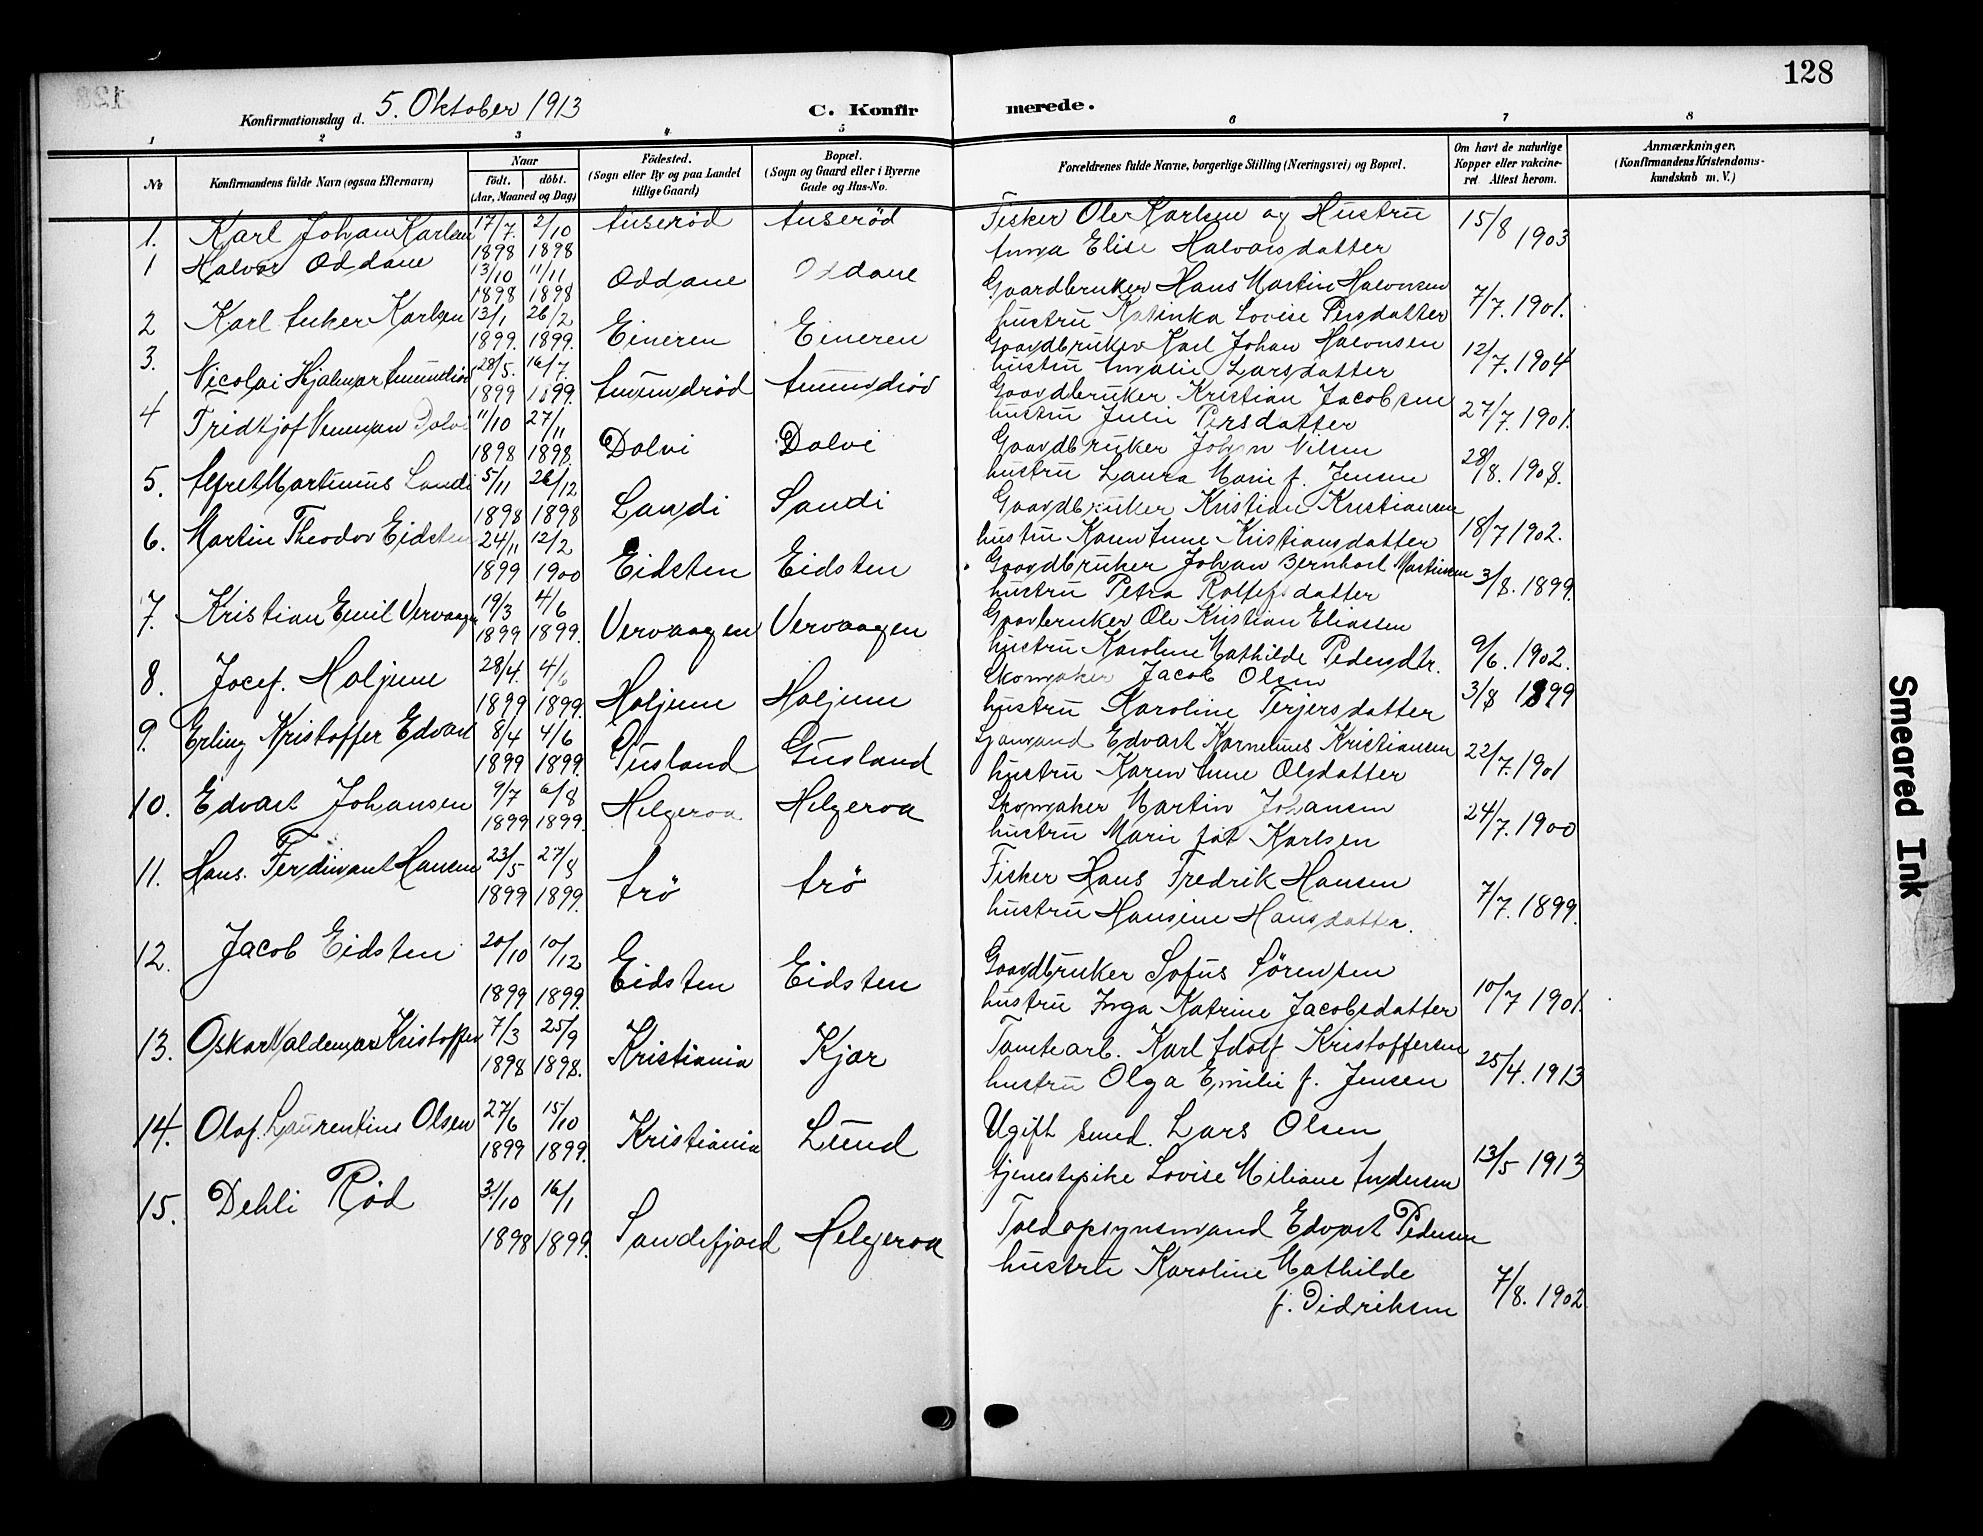 128
Konfirmationsdag d. 5. Oktober 1913 C. Konfirmerede.
1 2 3 4 5 6 7 8
No Konfirmandens fulde Navn (ogsaa Efternavn) Naar födt. döbt. (Aar, Maaned og Dag) Födested. (Sogn eller By og paa Landet tillige Gaard) Bopæl. (Sogn og Gaard eller i Byerne Gade og Hus-No. Forældrenes fulde Navne, borgerlige Stilling (Næringsvei) og Bopæl. Om havt de naturlige Kopper eller vakcineret Attest herom. Anmærkninger, (Konfirmandens Kristendomskundskab m. V.)
1. Karl Johan Karlsen 17/7. 1898 2/10 1898 Auseröd Auseröd Fisker Ole Karlsen og Hustru Anna Elise Halvorsdatter 15/8 1903
1 Halvor Oddane 13/10 1898 11/11 1898 Oddane Oddane Gaardbruker Hans Martin Halvorsen hustru Katinka Lovise Persdatter 7/7. 1901.
2 Karl Anker Karlsen 13/1 1899. 26/2 1899. Eineren Eineren Gaardbruker Karl Johan Halvorsen hustru Amalie Larsdatter 12/7. 1904
3. Nicolai Hjalmar Amundröd 28/5. 1899 16/7 1899. Amundröd Amundröd Gaardbruker Kristian Jacobsen hustru Julie Persdatter 27/7. 1901.
4 Fridtjof Venman Dolvi 11/10 1898 27/11 1898 Dolvi Dolvi Gaardbruker Johan Nilsen hustru Laura Marie f. Jensen 28/8. 1908.
5. Alfret Martinius Landi 5/11 1898 26/12 1898 Landi Sandi Gaardbruker Kristian Kristiansen hustru Karen Anne Kristiansdatter 18/7 1902.
6. Martin Theodor Eidsten 24/11 1899 12/2 1900 Eidsten Eidsten Gaardbruker Johan Bernhard Martinsen hustru Petra Rolfsdatter 3/8. 1899.
7. Kristian Emil Vervaagen 19/3 1899 4/6 1899. Vervaagen Vervaagen Gaarbruker Ole Kristian Eliassen hustru Karoline Mathilde Pedersdtr. 9/6. 1902.
8. Jocef. Holjene 28/4. 1899 4/6 1899. Holjene Holjene Skomaker Jacob Olsen hustru Karoline Terjersdatter 3/8 1899
9. Erling Kristoffer Edvart 8/4 1899 4/6 1899. Gusland Gusland Sjømand Edvart Kornelius Kristiansen hustru Karen Anne Olsdatter 22/7. 1901
10. Edvart Johansen 9/7 1899 6/8 1899. Helgeroa Helgeroa Skomaker Martin Johansen hustru Marie föt Karlsen 24/7. 1900
11. Hans. Ferdinant Hansen 23/5 1899 27/8 1899. Arö Arö Fisker Hans Fredrik Hansen hustru Hansine Hansdatter. 7/7. 1899.
12. Jacob Eidsten 20/10 1899 10/12 1899. Eidsten Eidsten Gaardbruker Sofus Sörensen hustru Inga Katrine Jacobsdatter 10/7 1901.
13. Oskar Valdemar Kristoffer 7/3 1898 25/9 1898. Kristiania Kjær Tomtearb. Karl Adolf Kristoffersen hustru Olga Emilie f. Jensen 25/4. 1913
14. Olaf. Laurentius Olsen 27/6 1899 15/10 1899. Kristiania Lund Ugift smed. Lars Olsen tjenestepike Lovise Miliane Andersen 13/5 1913
15. Dehli Röd 31/10 1898 16/1 1899. Sandefjord Helgeroa Toldopsynsmand Edvart Pedersen hustru Karoline Mathilde f. Didriksen 7/8. 1902
Smeared Ink